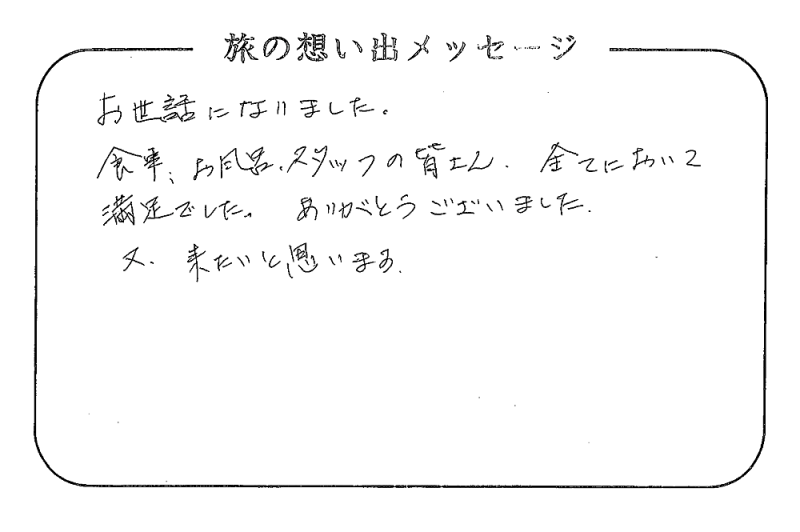 旅の想い出メッセージ
お世話になりました。
食事、お風呂、スタッフの皆さん、全てにおいて
満足でした。ありがとうございました。
又、来たいと思います。